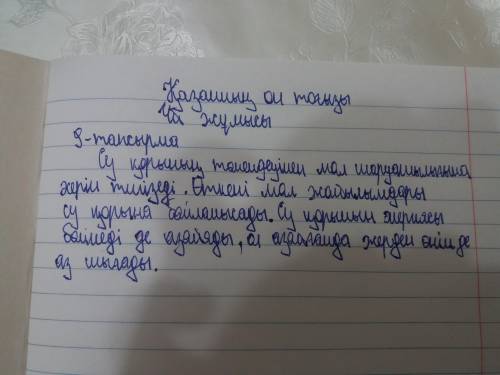 Қазанның он тоғызы
Үй жұмысы
9-тапсырма
Су қорының төмендеуінен мал шаруашылығына
зерін тигізеді. Өткені мал жайылымдары
су қорына байланысады. Су қорының
бөлінеді де азайяды, ол азайғанда жерден өнім де
аз шығады.